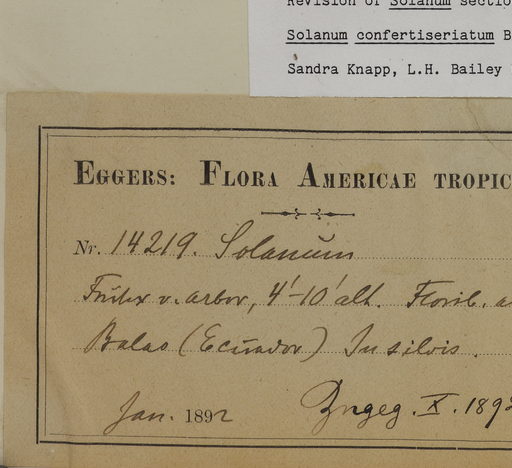 Revision of Solanum sectio
Solanum confertiseriatum B
Sandra Knapp, L.H. Bailey
EGGERS: FLORA AMERICAE TROPIC
Nr. 14219. Solanum
Frutex v. arbor, 4'-10' alt. Florib. a
Balao (Ecuador) In silvis.
Jan. 1892 Zugeg. X. 1892